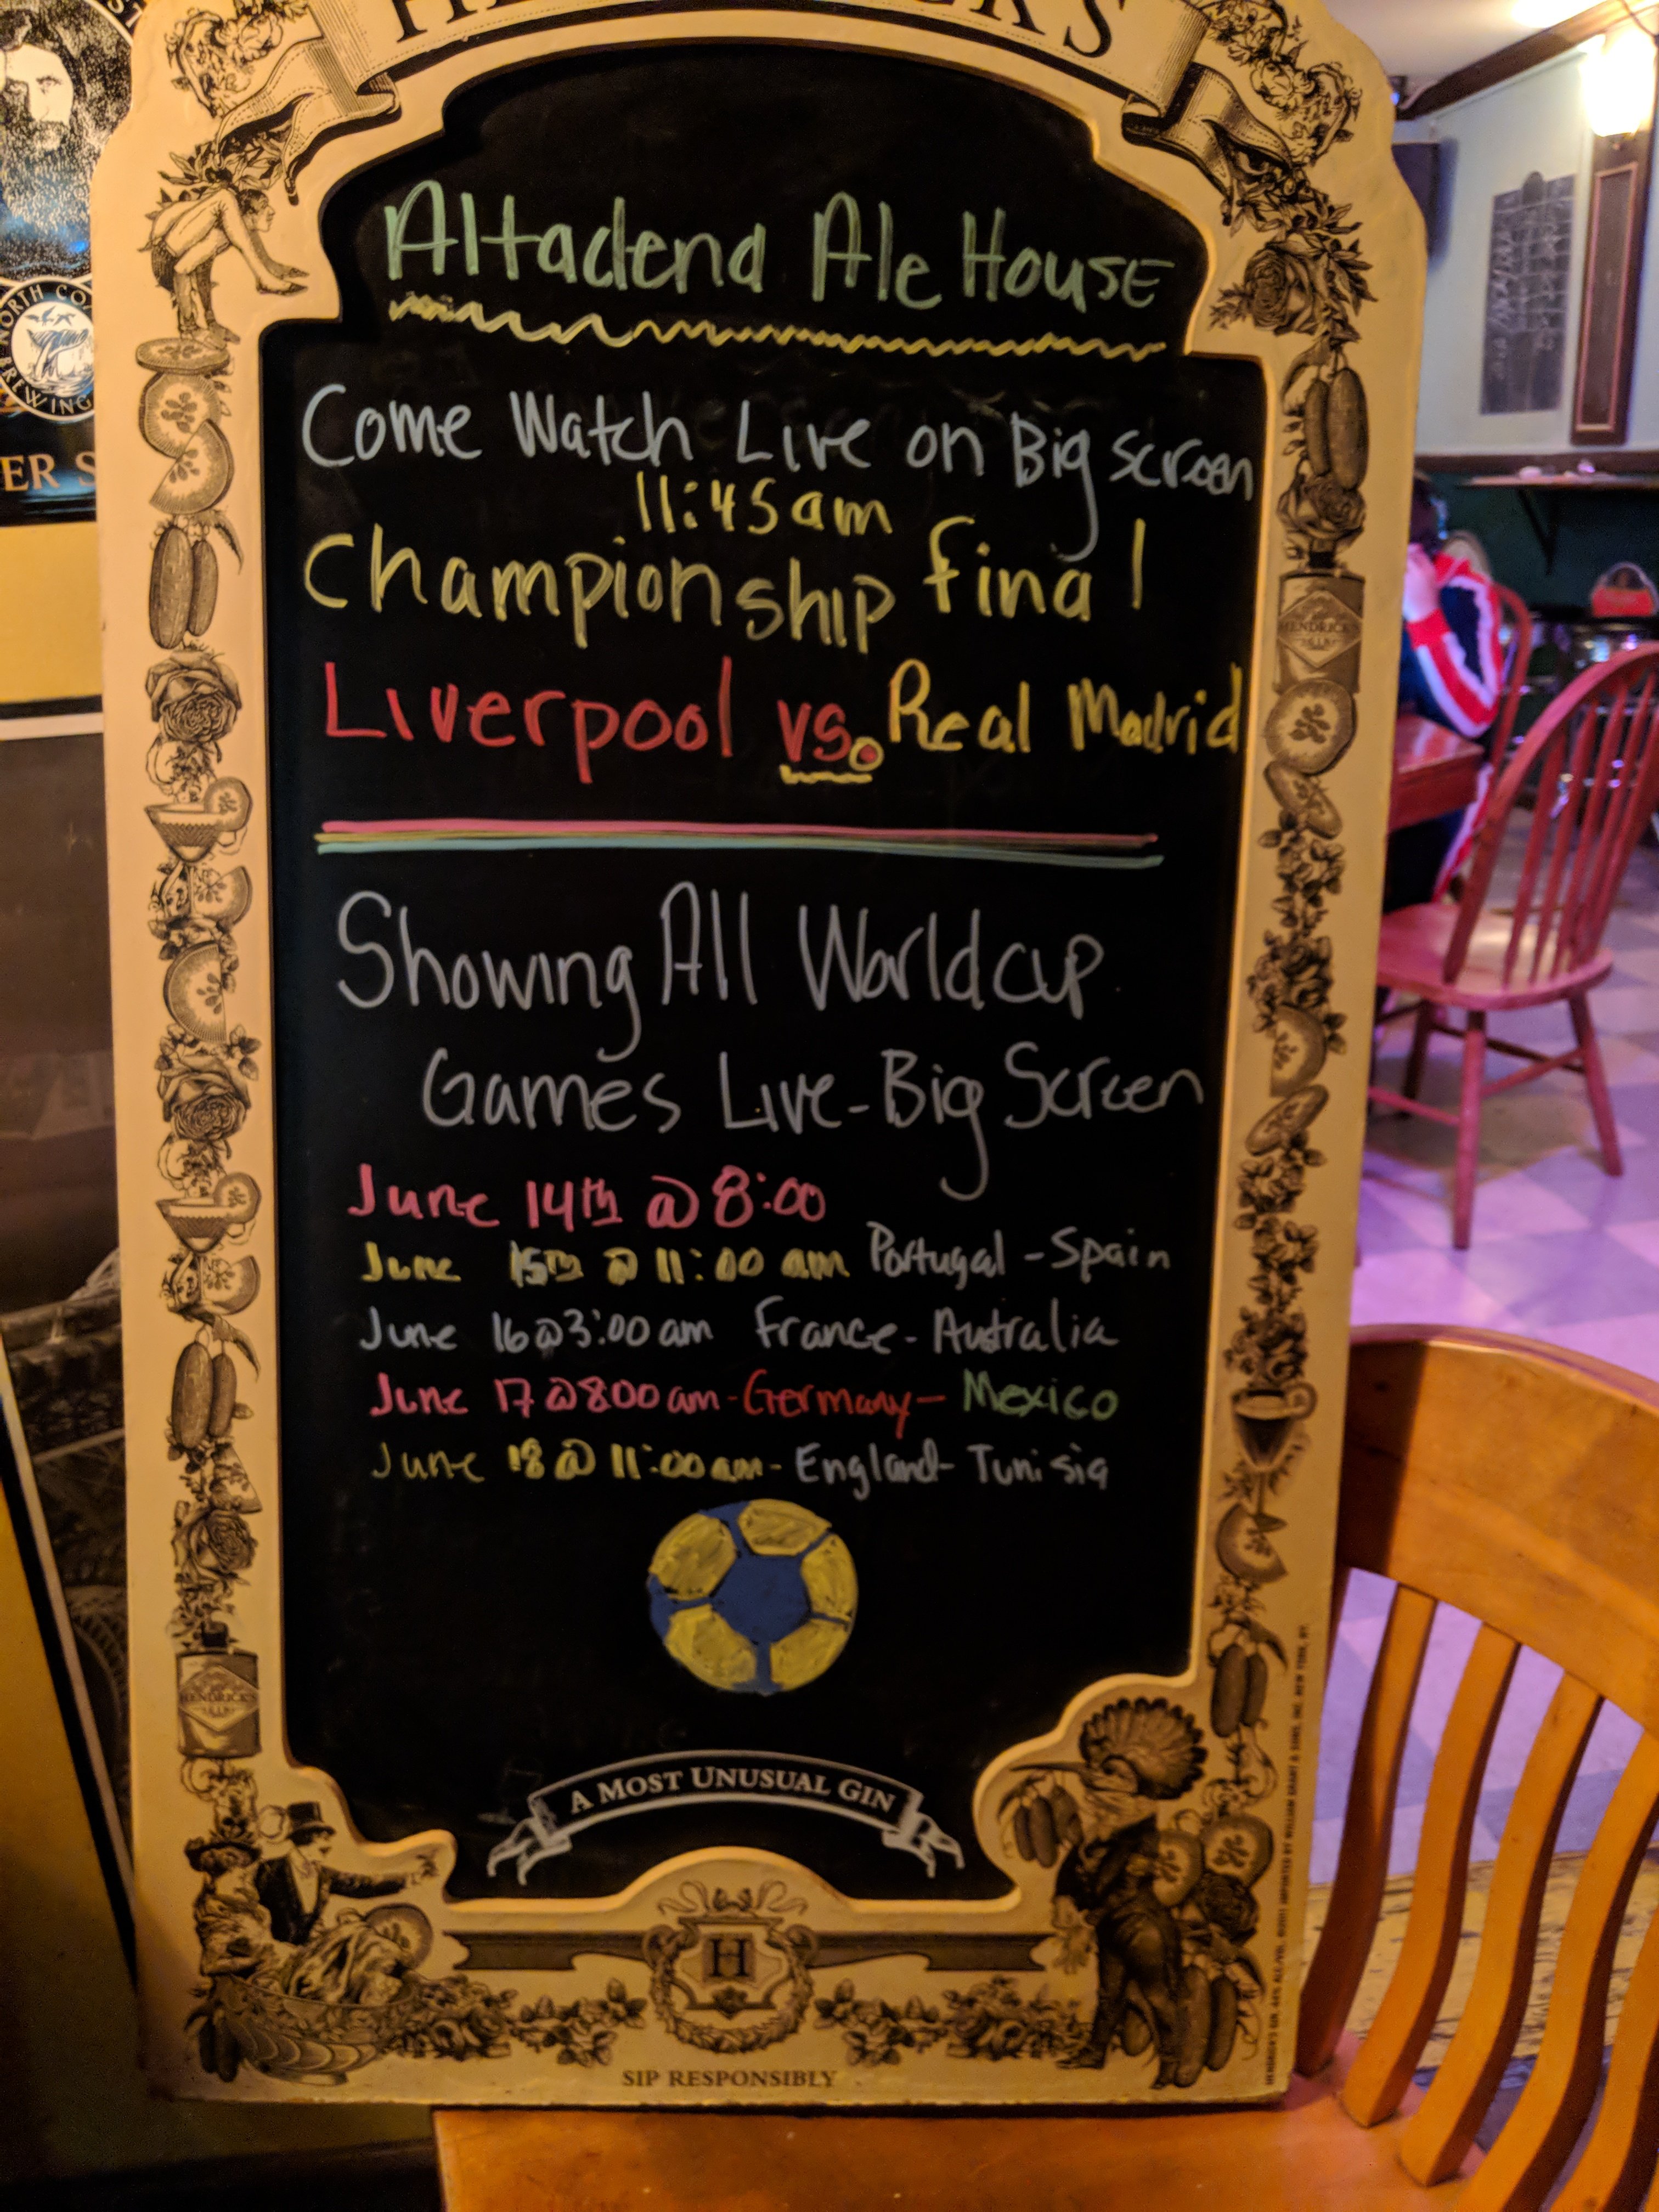 Altadena Ale House
Come Watch Live on Big screen
11:45am
Championship final
Liverpool vs. Real Madrid
Showing All Worldcup
Games Live-Big Screen
June 14th @ 8:00
June 15th @ 11:00 am Portugal - Spain
June 16 @ 3:00 am France - Australia
June 17 @ 800 am - Germany - Mexico
June 18 @ 11:00 am - England - Tunisia
A MOST UNUSUAL GIN
H
SIP RESPONSIBLY
HENDRICK'S
HENDRICK'S
ER S